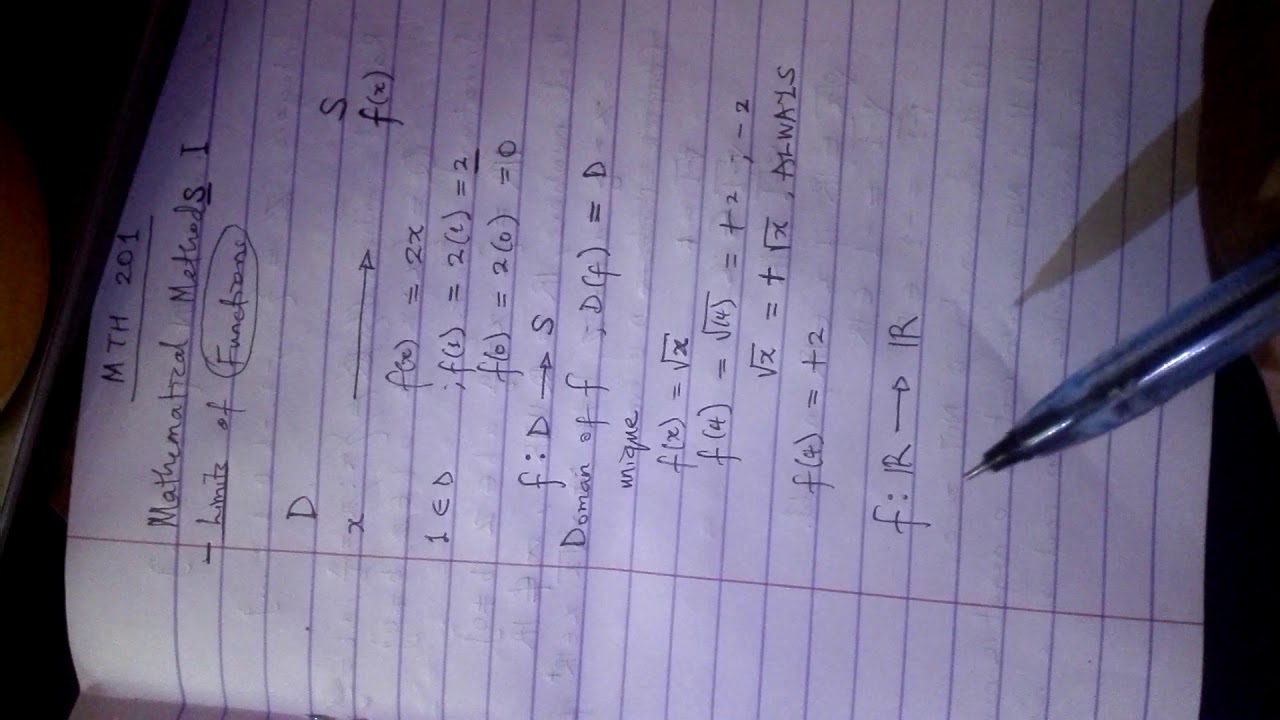 MTH 201
Mathematical Methods I
- Limits of Functions
D S
x → f(x)
f(x) = 2x
1 ∈ D ; f(1) = 2(1) = 2
f(0) = 2(0) = 0
f : D → S
Domain of f ; D(f) = D
unique
f(x) = √x
f(4) = √(4) = +2 ; -2
√x = +√x , ALWAYS
f(4) = +2
f : ℝ → ℝ